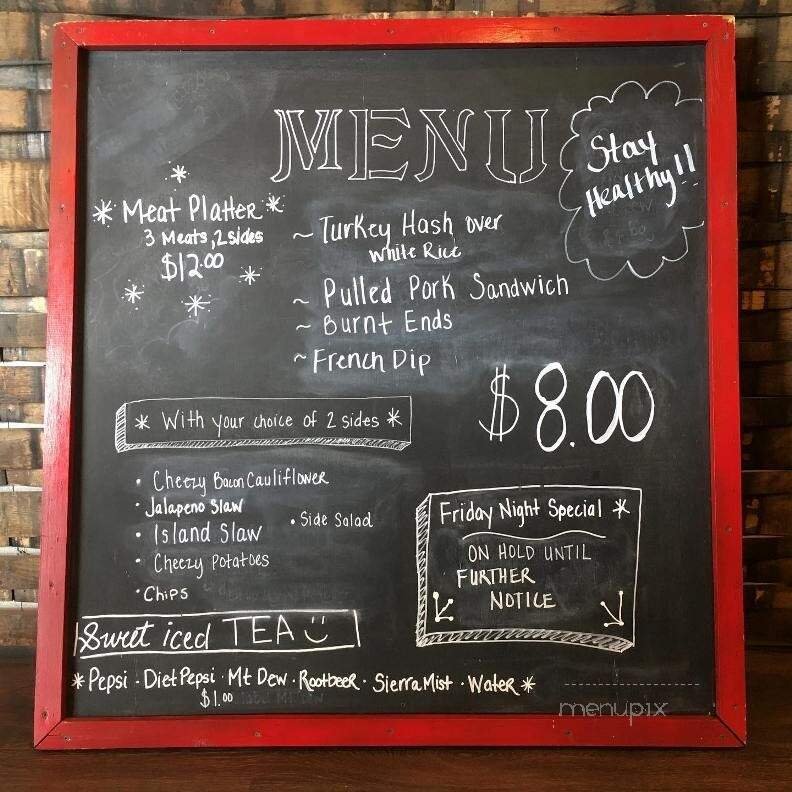 MENU
Stay
Healthy!!
* Meat Platter *
3 Meats, 2 sides
$12.00
~ Turkey Hash over
White Rice
~ Pulled Pork Sandwich
~ Burnt Ends
~ French Dip
$8.00
* With your choice of 2 sides *
• Cheezy Bacon Cauliflower
• Jalapeno Slaw
• Island Slaw
• Side Salad
• Cheezy Potatoes
• Chips
Friday Night Special *
ON HOLD UNTIL
FURTHER
NOTICE
Sweet iced TEA
* Pepsi · Diet Pepsi · Mt Dew · Rootbeer · Sierra Mist · Water *
$1.00
menupix